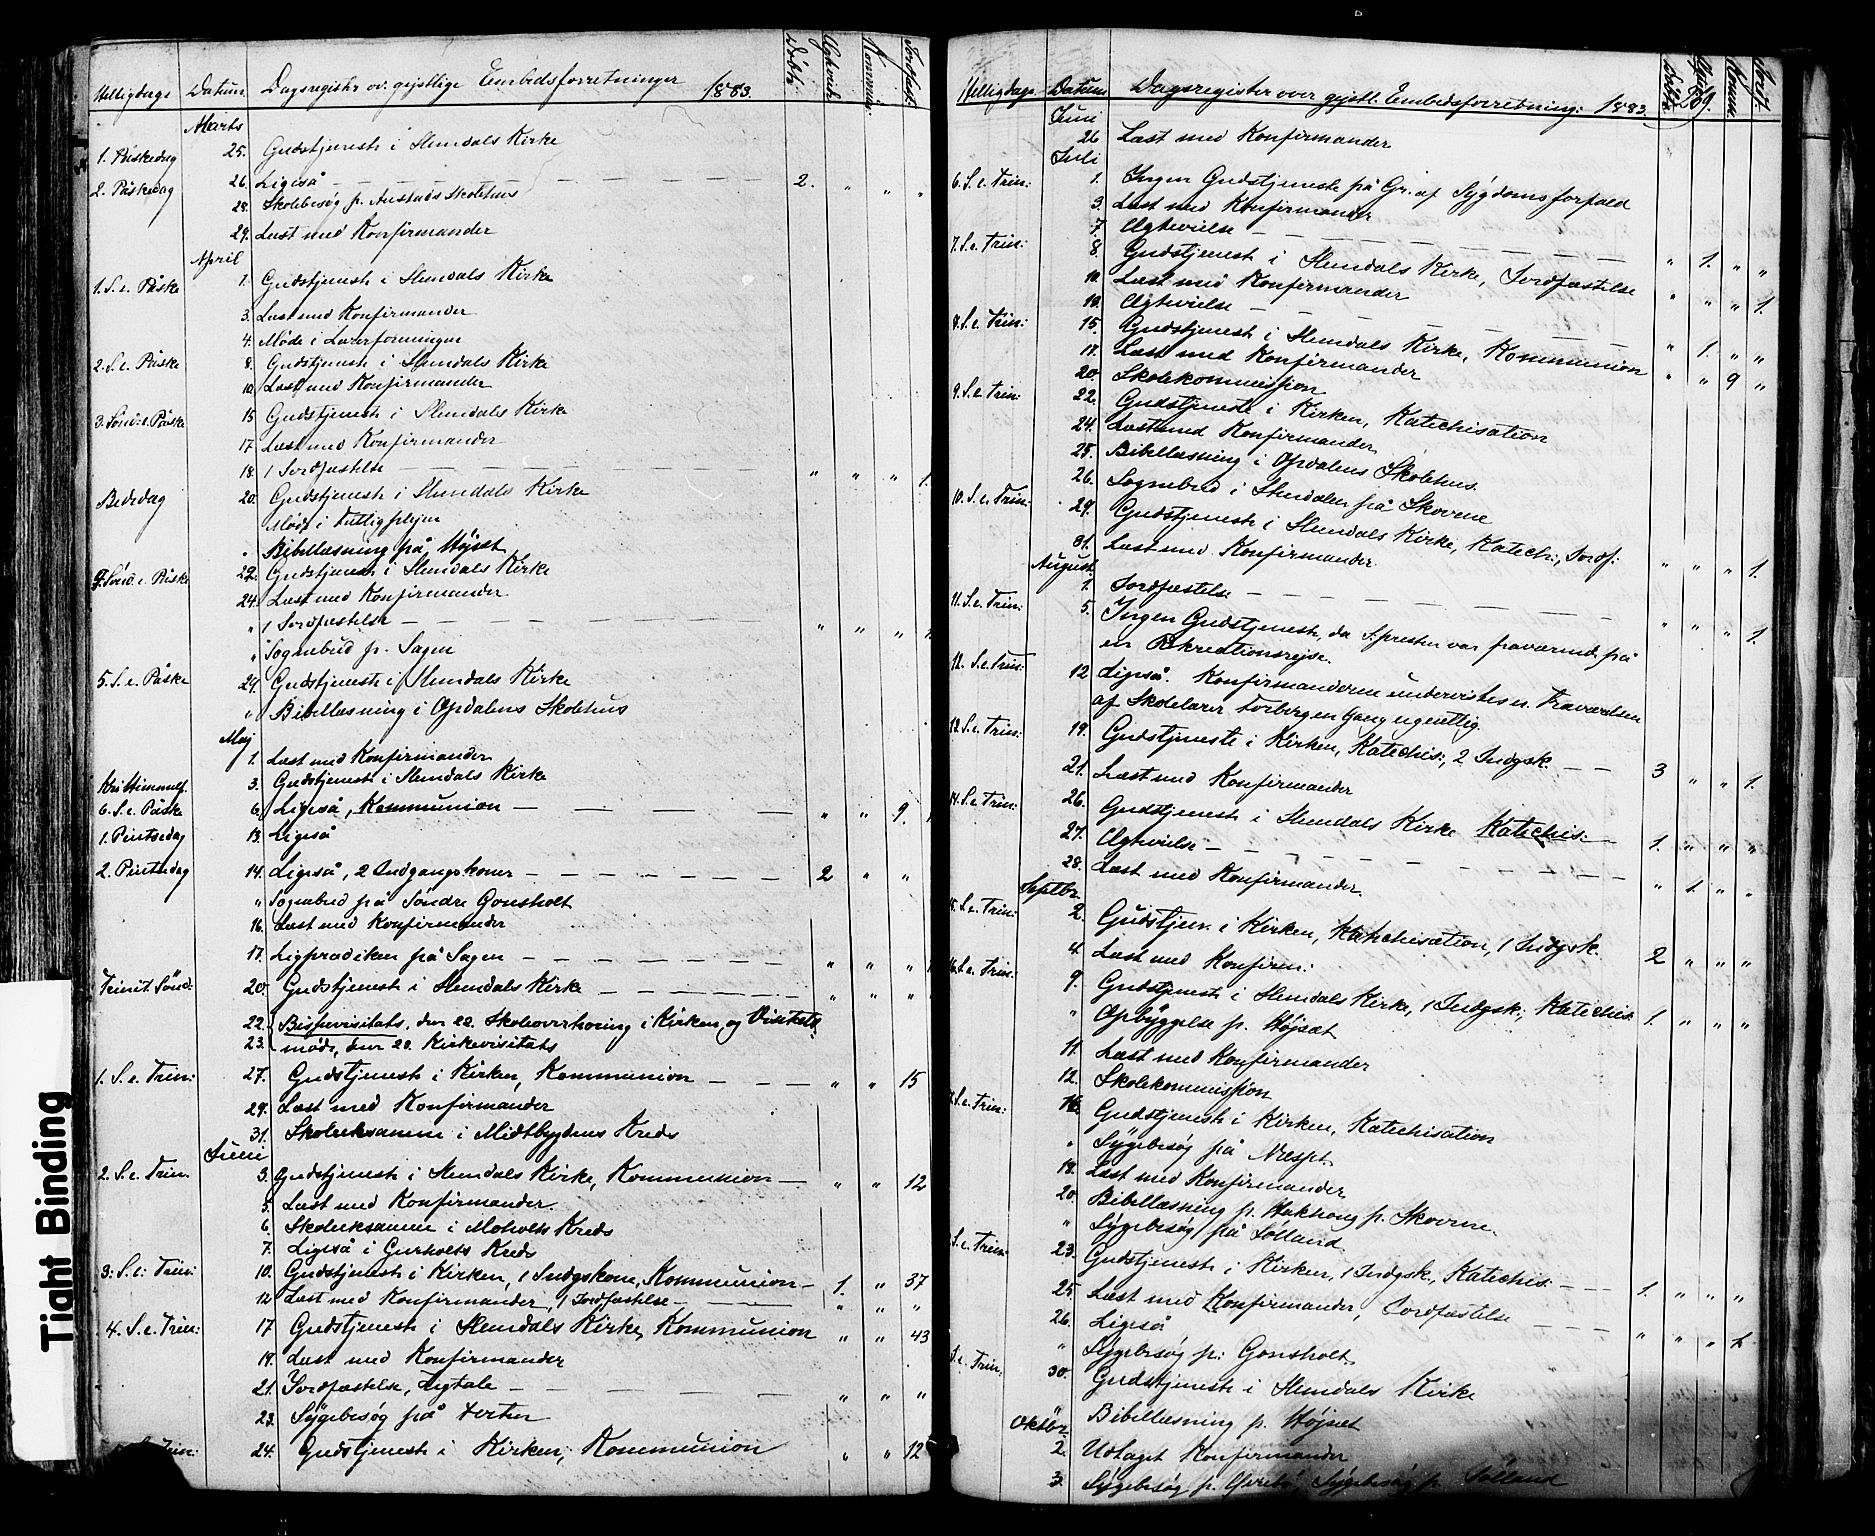 Helligdage Datum Dagsregister ov. gejstlige Embedsforretninger 1883. Døbte Ægtevied. Kommun. Jordfæst.
Marts
1. Påskedag 25. Gudstjeneste i Slemdals Kirke
2. Påskedag 26. Ligeså — 2. " " "
28. Skolebesøg p. Austads Skolehus
29. Læst med Konfirmander
April
1. S. e. Påske 1. Gudstjeneste i Slemdals Kirke
3. Læst med Konfirmander
4. Møde i Lærerforeningen
2. S. e. Påske 8. Gudstjeneste i Slemdals Kirke
10. Læst med Konfirmander
3. Sønd. e. Påske 15 Gudstjeneste i Slemdals Kirke
17. Læst med Konfirmander
18. 1 Jordfæstelse — " " " 1.
Bededag 20. Gudstjeneste i Slemdals Kirke
Møde i Fattigplejen
" Bibellæsning på Højset
Sønd. e. Påske 22. Gudstjeneste i Slemdals Kirke
24. Læst med Konfirmander
" 1 Jordfæstelse — " " "
" Sognebud p. Sagen
5. S. e. Påske 29. Gudstjeneste i Slemdals Kirke
" Bibellæsning i Opdalens Skolehus
Maj
1. Læst med Konfirmander
Kri. Himmelf. 3. Gudstjeneste i Slemdals Kirke
6. S. e. Påske 6. Ligeså, Kommunion — " " 9.
1. Pintsedag 13. Ligeså
2. Pintsedag 14. Ligeså, 2 Indgangskoner — 2 " "
" Sognebud på Søndre Gonsholt
16. Læst med Konfirmander
17. Ligprædiken på Sagen — " " "
Trinit. Sønd. 20. Gudstjeneste i Slemdals Kirke — " " "
22. Bispevisitats, den 22. Skoleoverhøring i Kirken og Visitats
23. møde, den 23. Kirkevisitats
1. S. e. Trin: 27. Gudstjeneste i Kirken, Kommunion — " " 15
29. Læst med Konfirmander
31. Skoleeksamen i Midtbygdens Kreds
Juni
2. S. e. Trin. 3. Gudstjeneste i Slemdals Kirke, Kommunion — " " 12
5. Læst med Konfirmander.
6. Skoleeksamen i Moholts Kreds
7. Ligeså i Gurholts Kreds
3. S. e. Trin: 10. Gudstjeneste i Kirken, 1 Indgskone, Kommunion — 1. " 37
12 Læst med Konfirmander, 1 Jordfæstelse — " " "
4. S. e. Trin: 17 Gudstjeneste i Slemdals Kirke, Kommunion " " 43
19. Læst med Konfirmander
21. Jordfæstelse, Ligtale — " " "
23. Sygebesøg på
Trin: 24. Gudstjeneste i Kirken, Kommunion " " 12
Helligdage Datum Dagsregister over gejstl. Embedsforretning: 1883. Døbte Ægtev. Komm. Jordf.
269.
Juni
26 Læst med Konfirmander
Juli
6. S. e. Trin: 1. Ingen Gudstjeneste på Gr. af Sygdomsforfald
3. Læst med Konfirmander
7. Ægtevielse — " 1. " "
7. S. e. Trin: 8. Gudstjeneste i Slemdals Kirke, Jordfæstelse " " " 1.
10. Læst med Konfirmander
13. Ægtevielse — " 1. " "
8. S. e. Trin: 15. Gudstjeneste i Slemdals Kirke, Kommunion " " 9 "
17. Læst med Konfirmander
20. Skolekommission
9. S. e. Trin: 22. Gudstjeneste i Kirken, Katechisation
24. Læst med Konfirmander
25. Bibellæsning i Opdalens Skolehus.
26. Sognebud i Slemdalen på Skovene
10. S. e. Trin: 29. Gudstjeneste i Slemdals Kirke, Katech:, Jordf: " " " 1.
31. Læst med Konfirmander.
August
1. Jordfæstelse — " " " 1.
11. S. e. Trin: 5. Ingen Gudstjeneste, da S.presten var fraværende på
en Rekreationsrejse.
12. S. e. Trin: 12 Ligeså. Konfirmanderne undervistes u. Fraværelsen
af Skolelærer Torbergen Gang ugentlig.
S. e. Trin: 19. Gudstjeneste i Kirken, Katechis:, 2 Indgsk. — 3 " " 1.
21. Læst med Konfirmander
14. S. e. Trin: 26. Gudstjeneste i Slemdals Kirke Katechis: — 1. " " "
27. Ægtevielse — " 1 " "
28. Læst med Konfirmander.
Septbr.
15. S. e. Trin: 2. Gudstjen. i Kirken, Katechisation, 1 Indgsk. 2 " " "
4. Læst med Konfirm:
16. S. e. Trin: 9. Gudstjeneste i Slemdals Kirke, 1 Indgsk:, Katechis: 1. " " "
" Opbyggelse p. Højset
11. Læst med Konfirmander
12. Skolekommission
S. e. Trin: 16. Gudstjeneste i Kirken, Katechisation
" Sygebesøg på
18. Læst med Konfirmander
20. Bibellæsning p. Hakhong p. Skovene
" Sygebesøg på Solland
S. e. Trin: 23. Gudstjeneste i Kirken, 1 Indgsk., Katechis: — 1. " " "
25. Læst med Konfirmander, Jordfæstelse — " " " 1.
26. Ligeså
" Sygebesøg p. Gonsholt
S. e. Trin. 30. Gudstjeneste i Slemdals Kirke
" Bibellæsning p. Højset
Oktbr.
2. Udtaget Konfirmander
3. Sygebesøg p. Sygebesøg p. Solland
Tight Binding